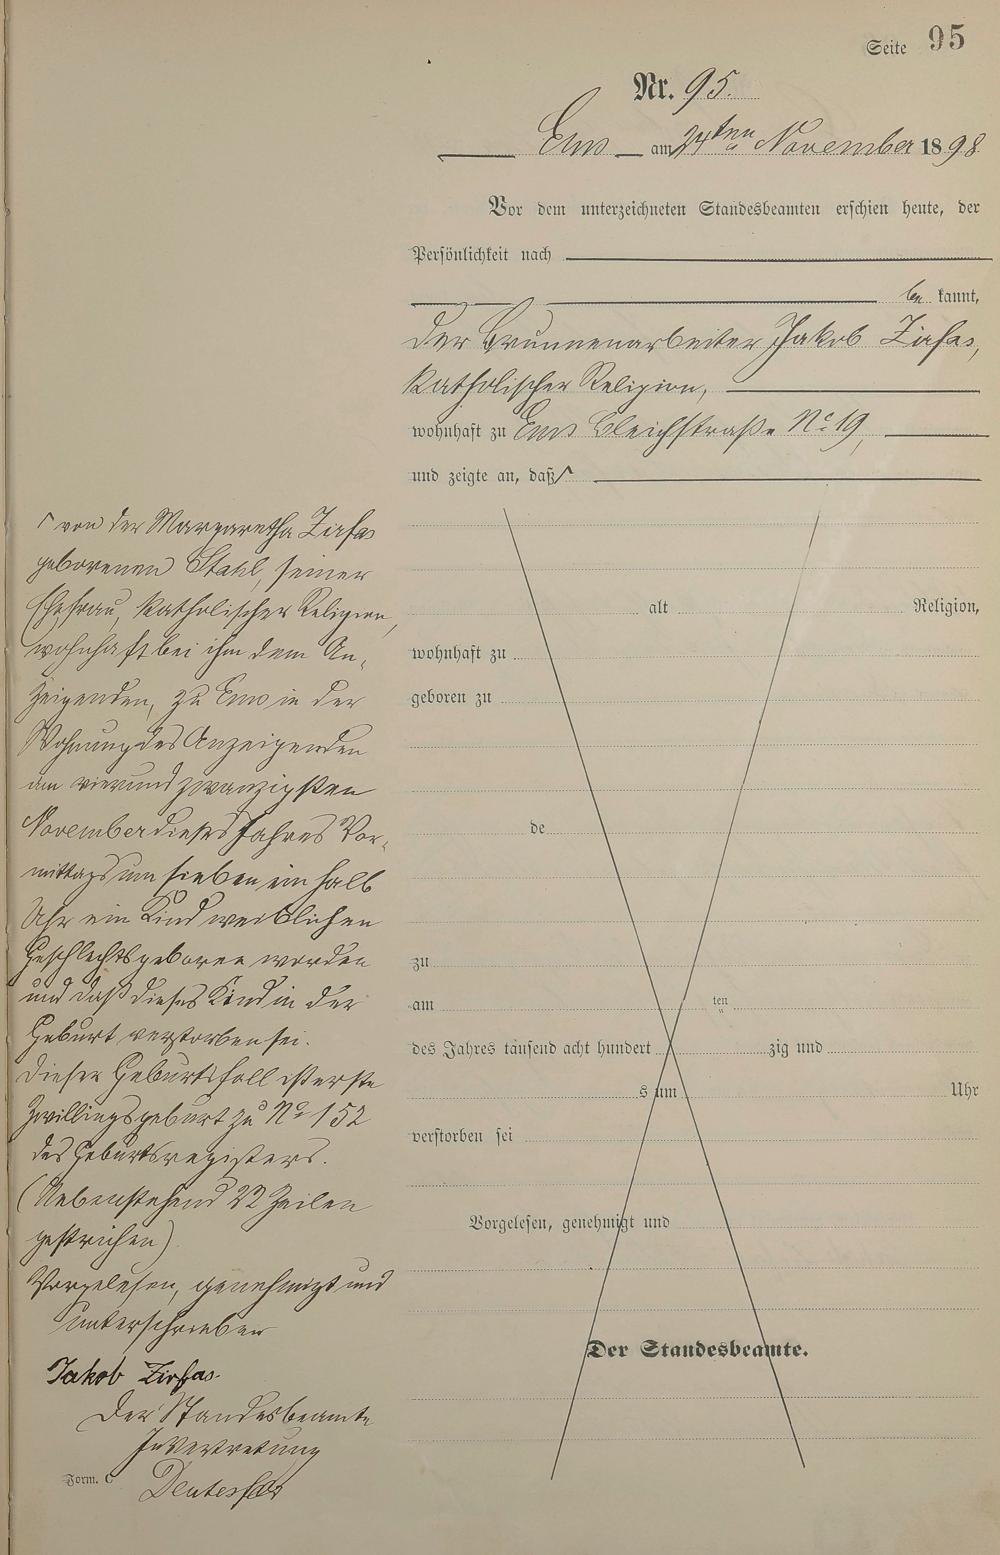 Seite 95
Nr. 95.
Ems am 24ten November 1898
Vor dem unterzeichneten Standesbeamten erschien heute, der
Persönlichkeit nach
be kannt,
der Brunnenarbeiter Jakob Zirfas,
katholischer Religion,
wohnhaft zu Ems Bleichstraße No 19,
und zeigte an, daß ┌
┌ von der Margaretha Zirfas
geborenen Stahl, seiner
Ehefrau, katholischer Religion,
wohnhaft bei ihm dem An-
zeigenden, zu Ems in der
Wohnung des Anzeigenden
am vierundzwanzigsten
November dieses Jahres Vor-
mittags um sieben ein halb
Uhr ein Kind weiblichen
Geschlechts geboren worden
und daß dieses Kind in der
Geburt verstorben sei.
Dieser Geburtsfall ist erste
Zwillingsgeburt zu No 152
des Geburtsregisters.
(Nebenstehend 22 Zeilen
gestrichen)
Vorgelesen, genehmigt und
unterschrieben
Jakob Zirfas.
Der Standesbeamte
In Vertretung
Form. C
alt Religion,
wohnhaft zu
geboren zu
de
zu
am ten
des Jahres tausend acht hundert zig und
s um Uhr
verstorben sei
Vorgelesen, genehmigt und
Der Standesbeamte.